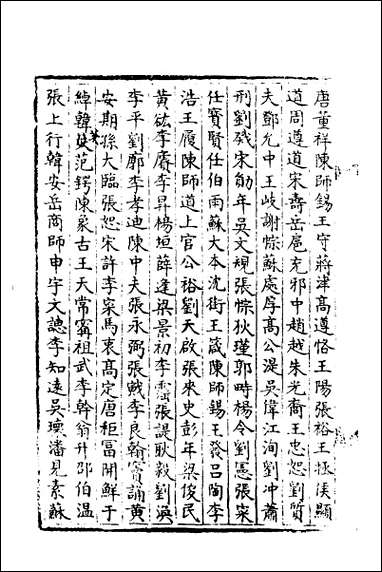 唐董祥陳師錫王守蔣津高遵恪王陽張裕王極侯顯
道周遵道宋壽岳扈充邪中趙越朱光裔王忠恕劉質
夫鄭允中王岐謝悰蘇處厚高公湜吳偉江洵劉沖蕭
刑劉發宋勛年吳文規張悰狄瑾郭時楊令劉憲張寀
任賓賢任伯雨蘇大本沈街王箴陳師錫王發呂陶李
浩王履陳師道上官公裕劉天啟張來史彭年梁俊民
黃鉉李膺李昇楊垣薛逢梁景初李霱張諟耿毅劉渙
李平劉廓李孝迪陳中夫張永弼張戩李良翰竇誦黃
安期孫大臨張恕宋許李寀馬衷高定唐秬冨開鮮于
綽韓英范鍔陳象古王天常甯祖武李幹翁升邵伯温
張上行韓安岳商師申宇文諗李知遠吳瓌潘見素蘇